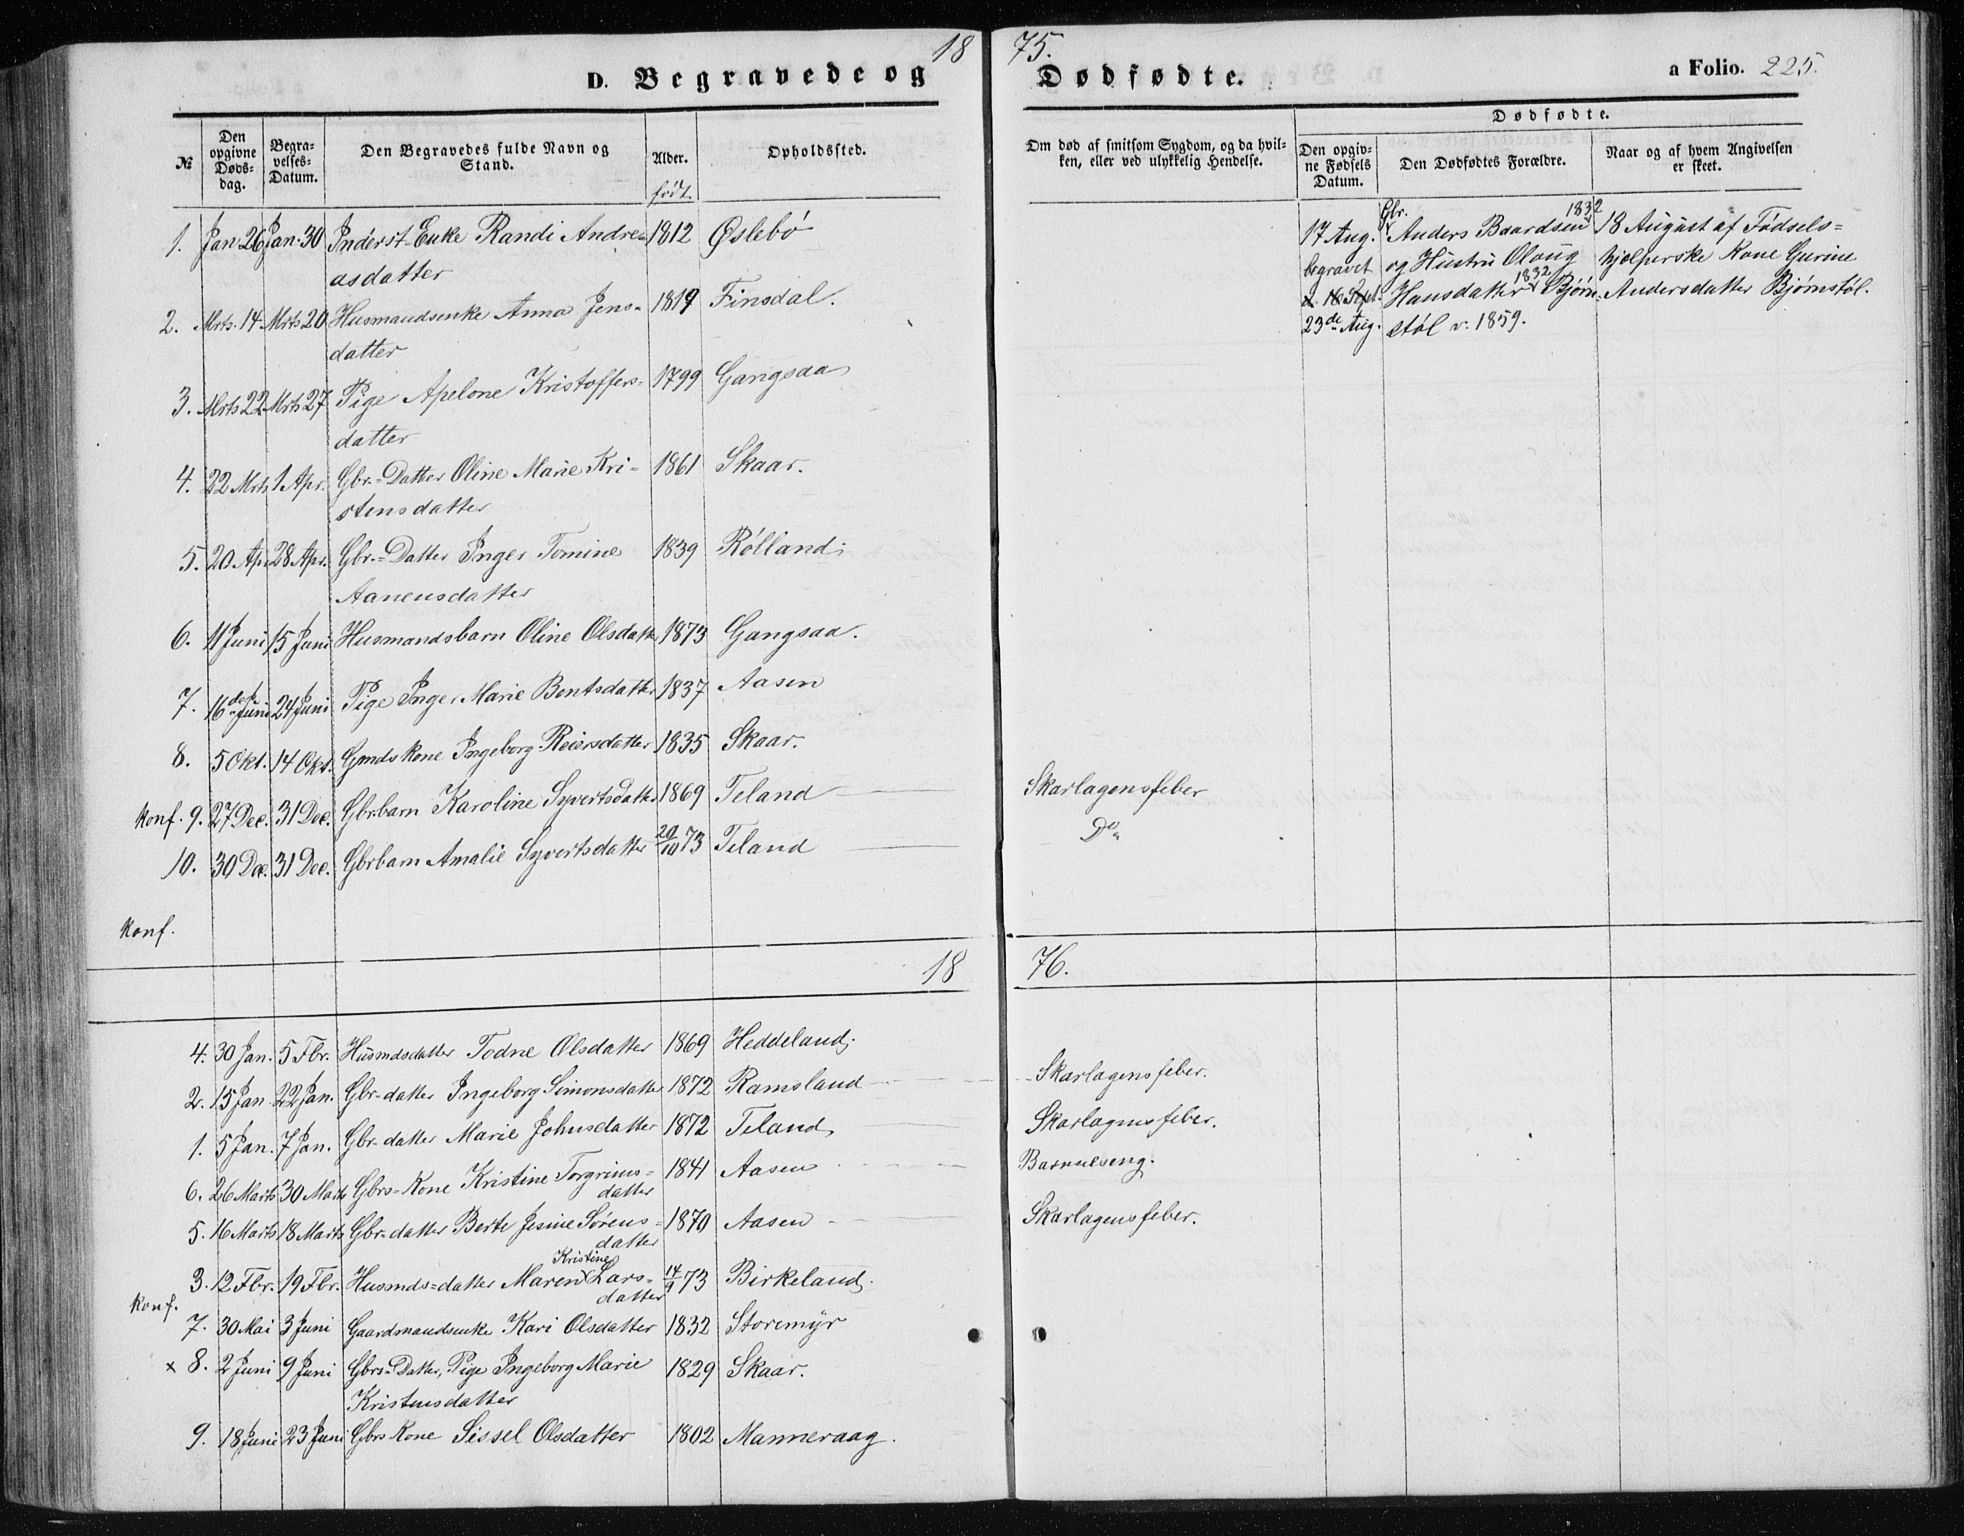 18 75.
D. Begravede og Dødfødte. a Folio. 225.
№ Den opgivne Døds-dag. Begra-velses-Datum. Den Begravedes fulde Navn og Stand. Alder. født Opholdssted. Om død af smitsom Sygdom, og da hvil-ken, eller ved ulykkelig Hendelse. Dødfødte. Den opgiv-ne Fødsels Datum. Den Dødfødtes Forældre. Naar og af hvem Angivelsen er skeet.
1. Jan. 26 Jan. 30 Inderst-Enke Randi Andre- 1812 Øslebø
asdatter
2. Mrts. 14 Mrts 20 Husmandsenke Anna Jens- 1819 Finsdal.
datter
3. Mrts 22 Mrts 27 Pige Apelone Kristoffers- 1799 Gangsaa
datter
4. 22 Mrts 1 Apr. Gbr.-Datter Oline Marie Kri- 1861 Skaar.
stensdatter
5. 20 Apr. 28 Apr. Gbr.-Datter Inger Tomine 1839 Røllandj
Aanensdatter
6. 11 Juni 15 Juni Husmandsbarn Oline Olsdatter 1873 Gangsaa.
7. 16de Juni 24 Juni Pige Inger Marie Bentsdatter 1837 Aasen
8. 5 Okt. 14 Okt. Gmds kone Ingeborg Reiersdatter 1835 Skaar.
konf. 9. 27 Dec. 31 Dec. Gbrbarn Karoline Syvertsdatter 1869 Teland Skarlagensfeber
10. 30 Dec. 31 Dec. Gbrbarn Amalie Syvertsdatter 20/10 73 Teland Do
konf.
17 Aug. Gbr. Anders Baardsen 1832 18 August af Fødsels=
begravet og Hustru Oloug hjælperske Kone Gurine
x 16 Sept. Hansdatter 1832 Bjørn- Andersdatter Bjørnstøl.
23de Aug. støl v. 1859.
18 76.
4. 30 Jan. 5 Fbr. Husmdsdatter Todne Olsdatter 1869 Heddeland.
2. 15 Jan. 22 Jan. Gbr-datter Ingeborg Simonsdatter 1872 Ramsland Skarlagensfeber.
1. 5 Jan. 7 Jan. Gbr-datter Marie Johnsdatter 1872 Teland Skarlagensfeber.
6. 26 Marts 30 Marts Gbrs-Kone Kristine Torgrims- 1841 Aasen Barnseseng.
datter
5. 16 Marts 18 Marts Gbr-datter Berte Jesine Sørens- 1870 Aasen Skarlagensfeber.
datter
3. 12 Fbr. 19 Fbr. Husmds-datter Maren Kristine Lars- 14/9 73 Birkeland.
datter
konf.
7. 30 Mai 3 Juni Gaardmandsenke Kari Olsdatter 1832 Storemyr
x 8. 2 Juni 9 Juni Gbrs-Datter, Pige Ingeborg Marie 1829 Skaar.
Kristensdatter
9. 18 Juni 23 Juni Gbrs Kone Sissel Olsdatter 1802 Manneraag.